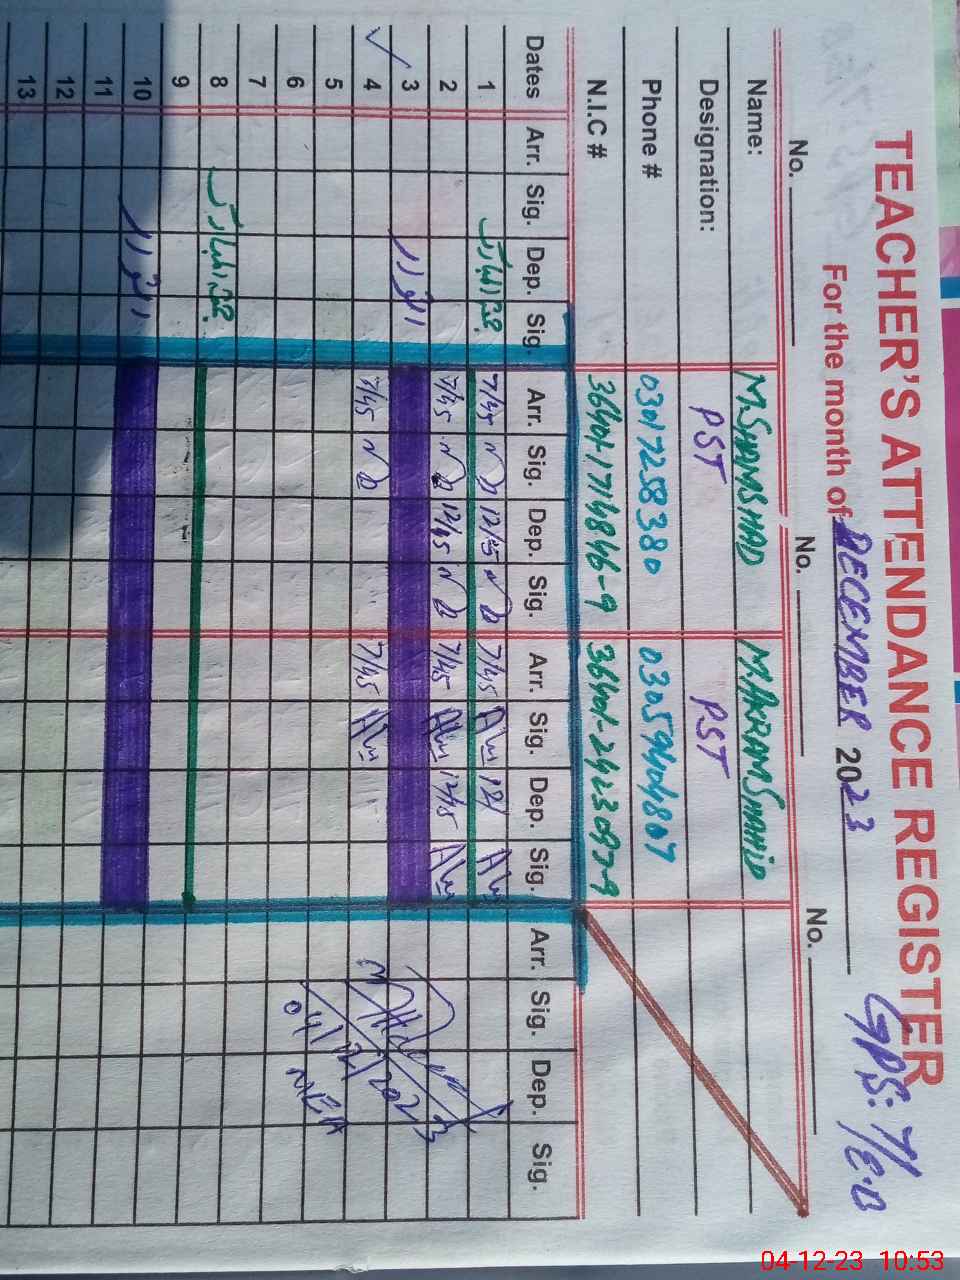 TEACHER'S ATTENDANCE REGISTER
For the month of DECEMBER 2023
GPS: 7/E.B
No. No. No.
Name: M.SHAMSHAD M.AKRAM SHAHID
Designation: PST PST
Phone # 03017258380 03059404807
N.I.C # 36401-1714846-9 36401-2423097-9
Dates Arr. Sig. Dep. Sig. Arr. Sig. Dep. Sig. Arr. Sig. Dep. Sig. Arr. Sig. Dep. Sig.
1 جمعۃ المبارک 7/45 12/45 7/45 12/
2 7/45 12/45 7/45 12/45
3 اتوار
4 7/45 7/45
5
6
7
8 جمعۃ المبارک
9
10 اتوار
11
12
13
04/12/2023
MEA
04-12-23 10:53